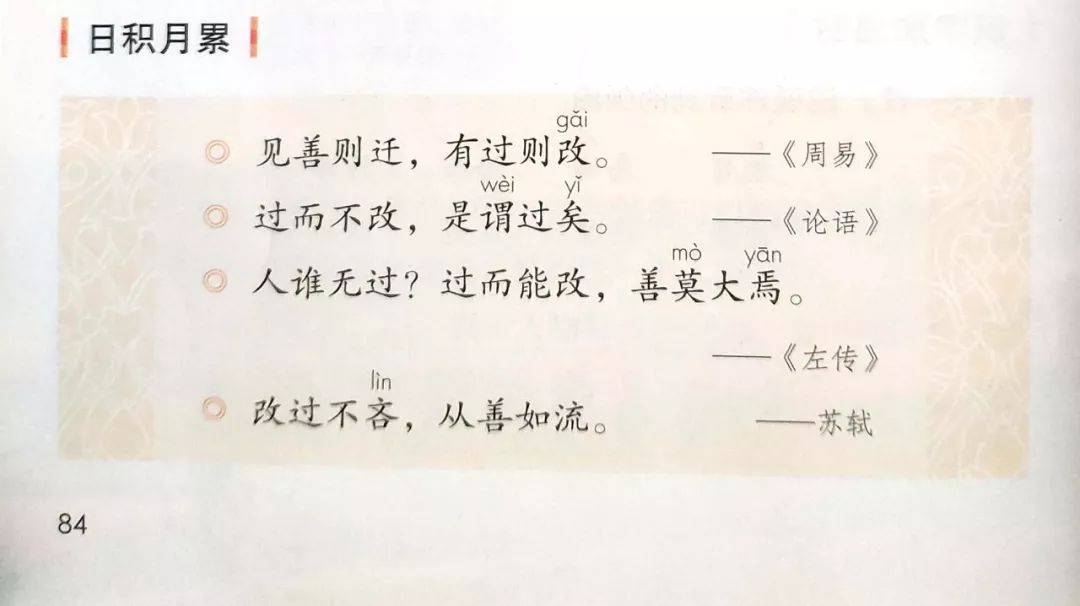 日积月累
gǎi
见善则迁，有过则改。 ——《周易》
wèi yǐ
过而不改，是谓过矣。 ——《论语》
mò yān
人谁无过？过而能改，善莫大焉。
——《左传》
lìn
改过不吝，从善如流。 ——苏轼
84